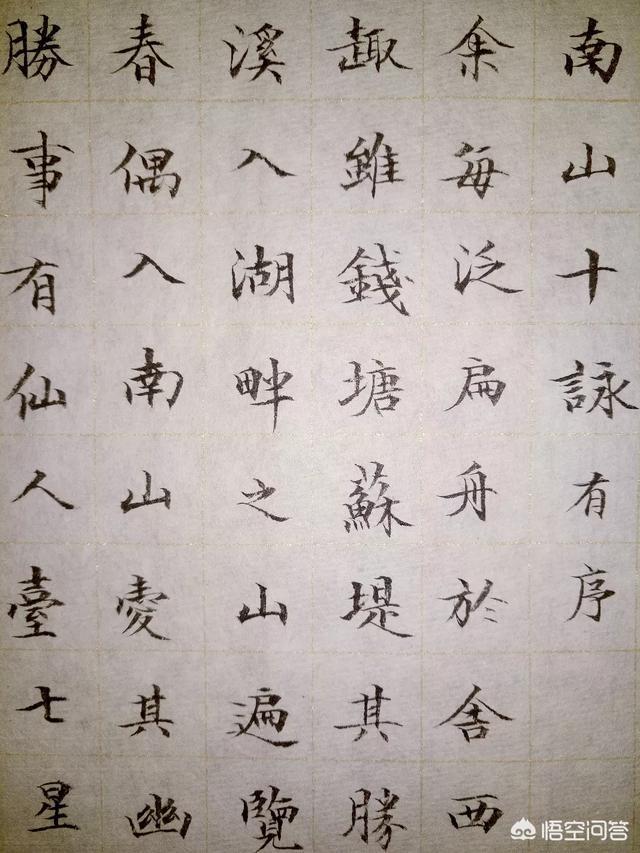 南山十詠有序
余每泛扁舟於舍西
趣雖錢塘蘇堤其勝
溪入湖畔之山遍覽
春偶入南山愛其幽
勝事有仙人臺七星
悟空问答